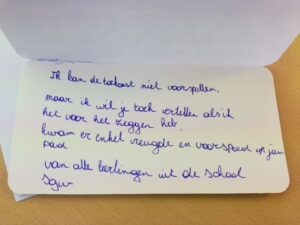 Ik kan de toekomst niet voorspellen,
maar ik wil je toch vertellen als ik
het voor het zeggen heb.
kwam er enkel vreugde en voorspoed op jou
pad
van alle leerlingen uit de school